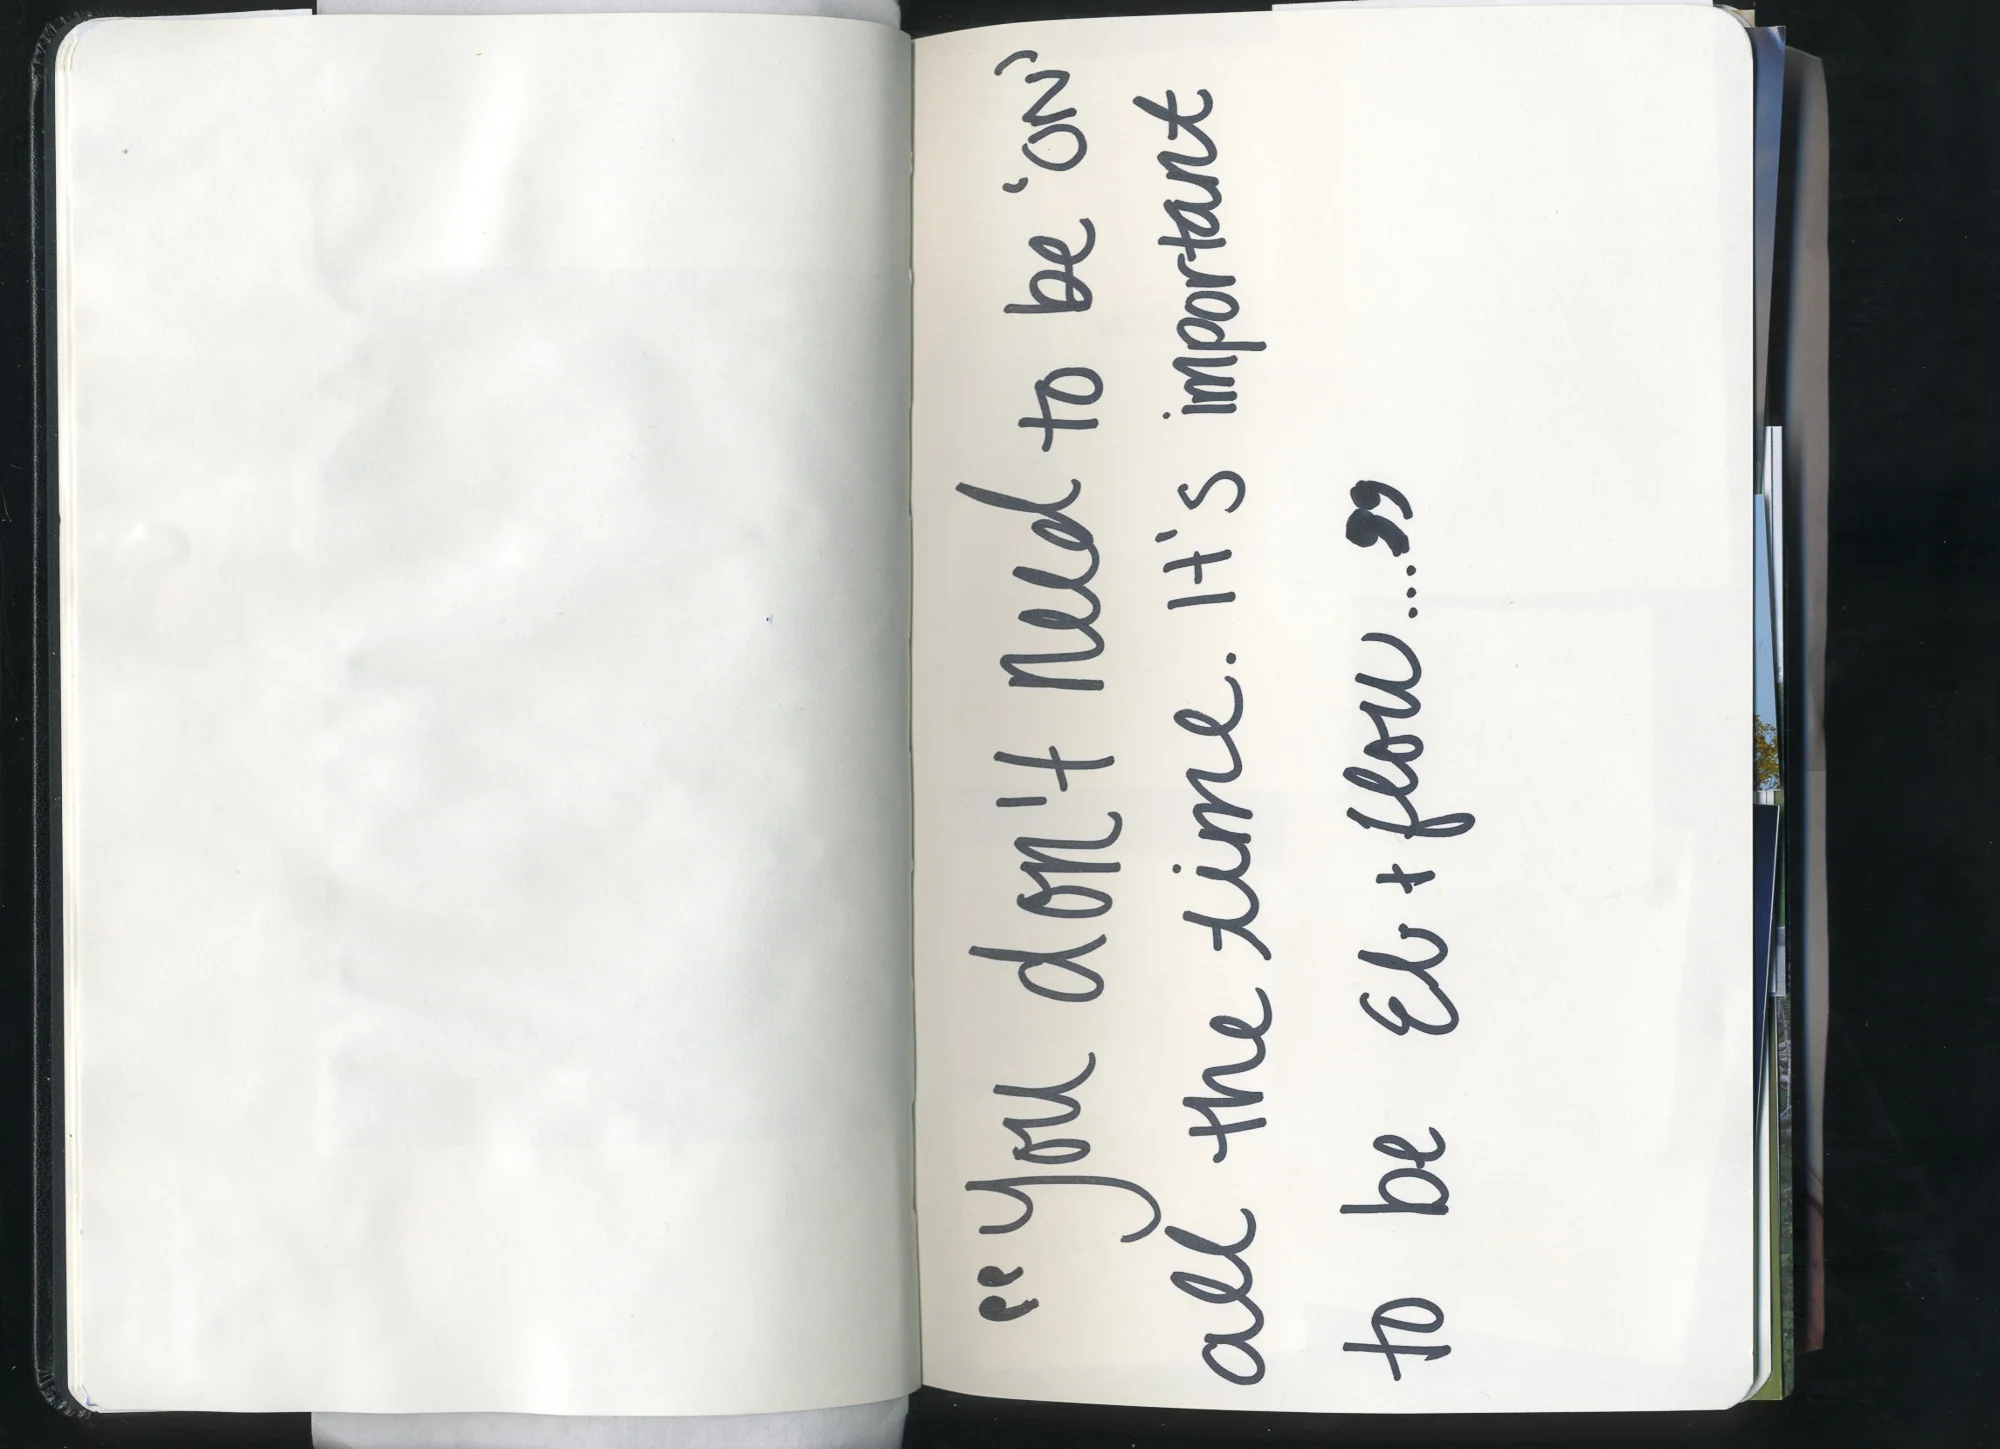 “You don't need to be 'ON'
all the time. It's important
to be Eb + flow....”